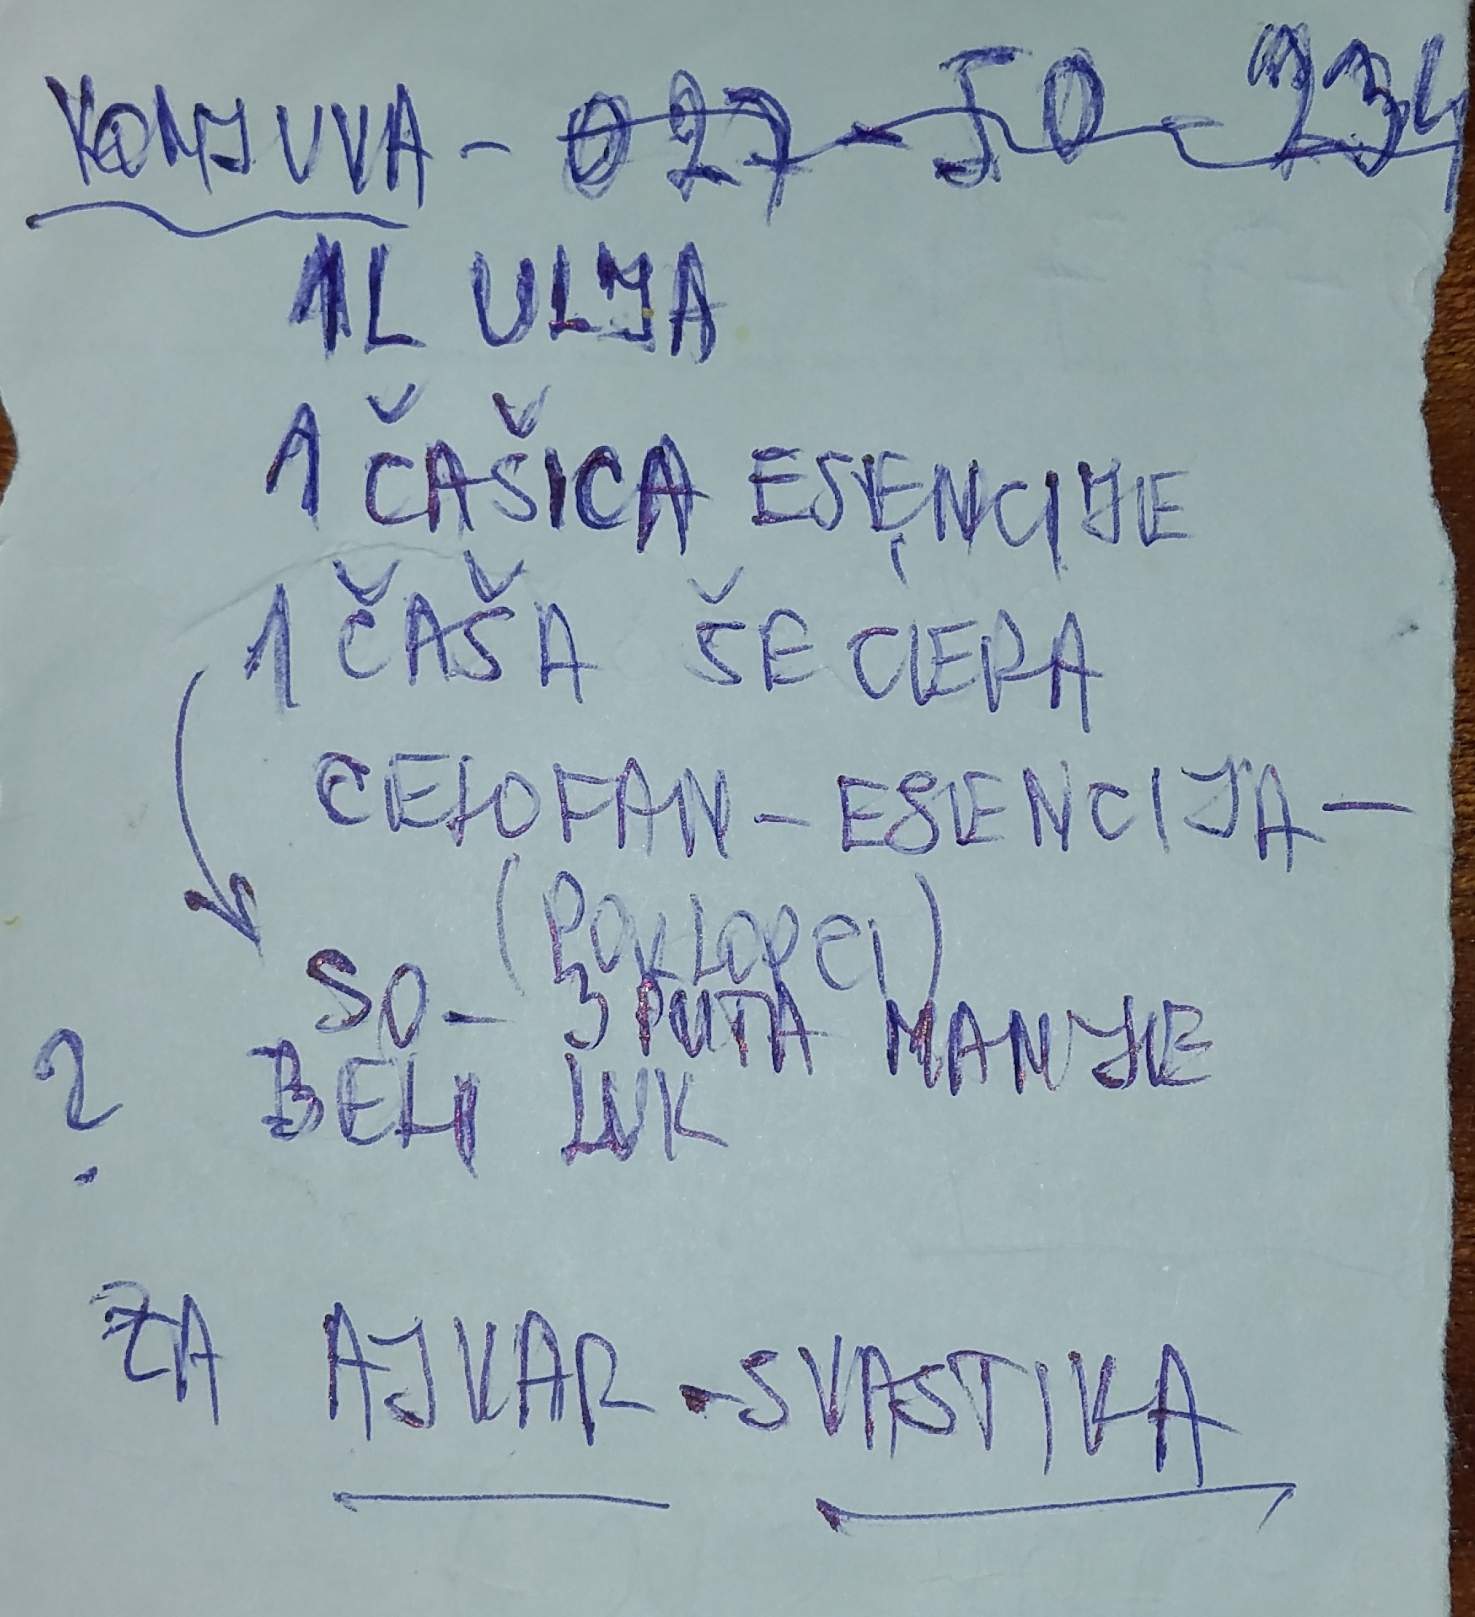 KONJUVA - 027-50-234
1L ULJA
1 ČAŠICA ESENCIJE
1 ČAŠA ŠECERA
CELOFAN - ESENCIJA -
(POKLOPCI)
SO - 3 PUTA MANJE
? BELI LUK
ZA AJVAR - SVASTIKA